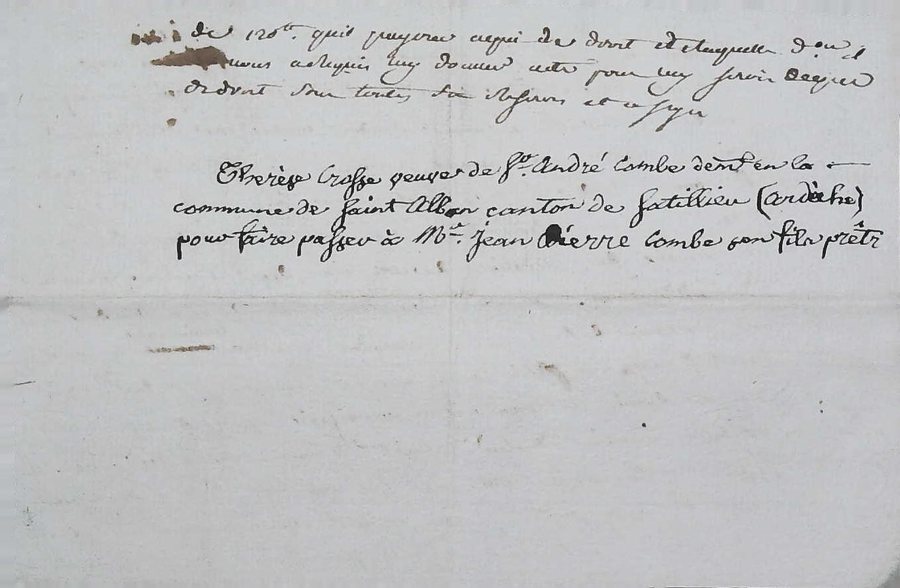 de 120tt. quil payera a qui de droit et laquelle d.
nous a requis luy donner acte pour luy servir
de droit sous toutes ses reserves et a signé
Therèse Crosse veuve de Sr. André Combe demt. en la
commune de Saint Alban canton de Satillieu (ardèche)
pour faire passer à Mr. Jean Pierre Combe son fils prêtr